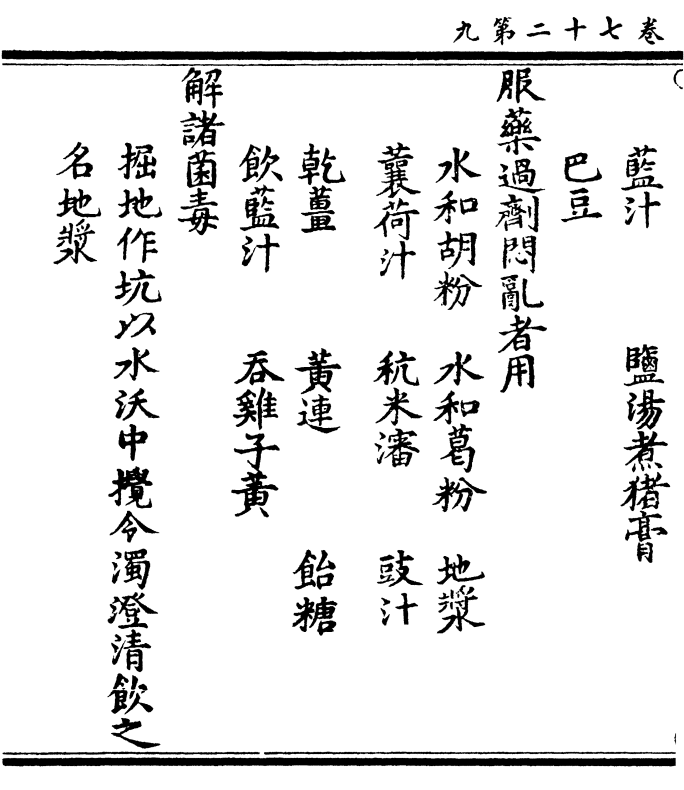 九第二十七卷
藍汁 鹽湯煮猪膏
巴豆
服藥過劑悶亂者用
水和胡粉 水和葛粉 地漿
蘘荷汁 秔米瀋 豉汁
乾薑 黃連 飴糖
飲藍汁 吞雞子黃
解諸菌毒
掘地作坑以水沃中攪令濁澄清飲之
名地漿